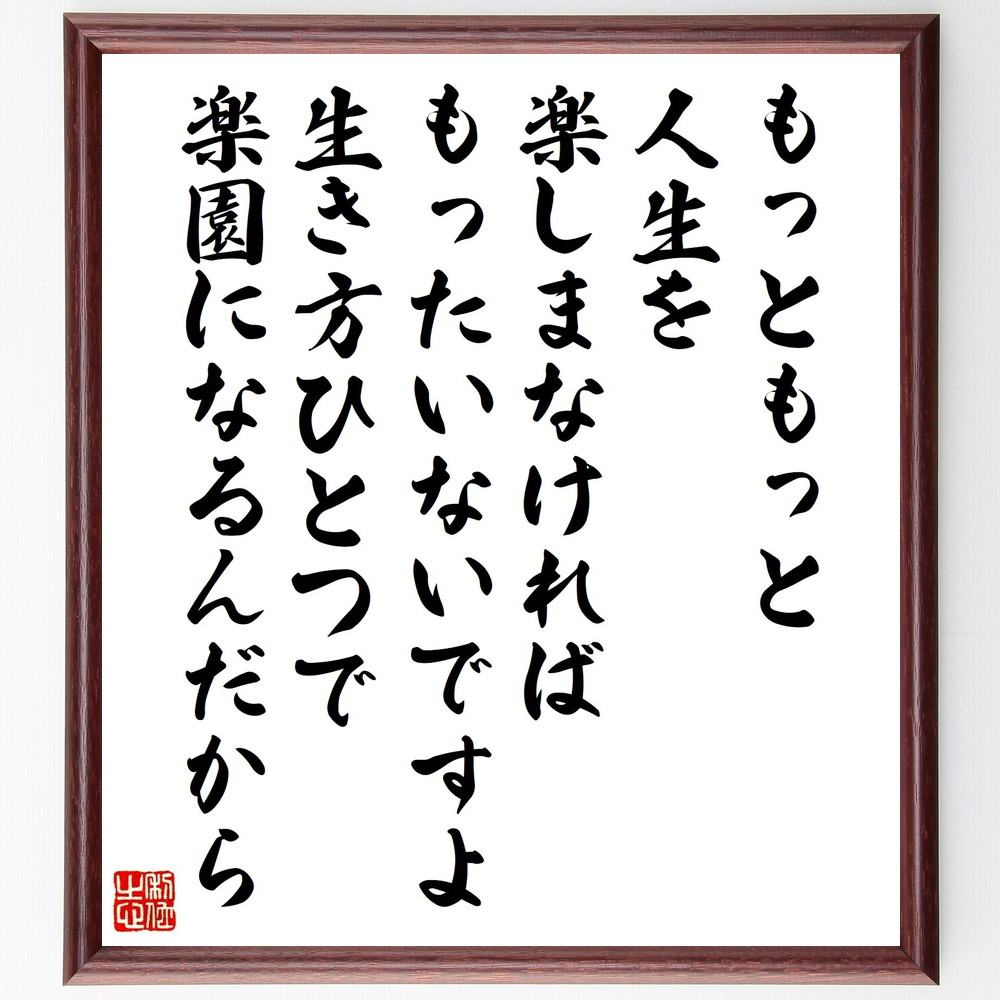 もっともっと
人生を
楽しまなければ
もったいないですよ
生き方ひとつで
楽園になるんだから